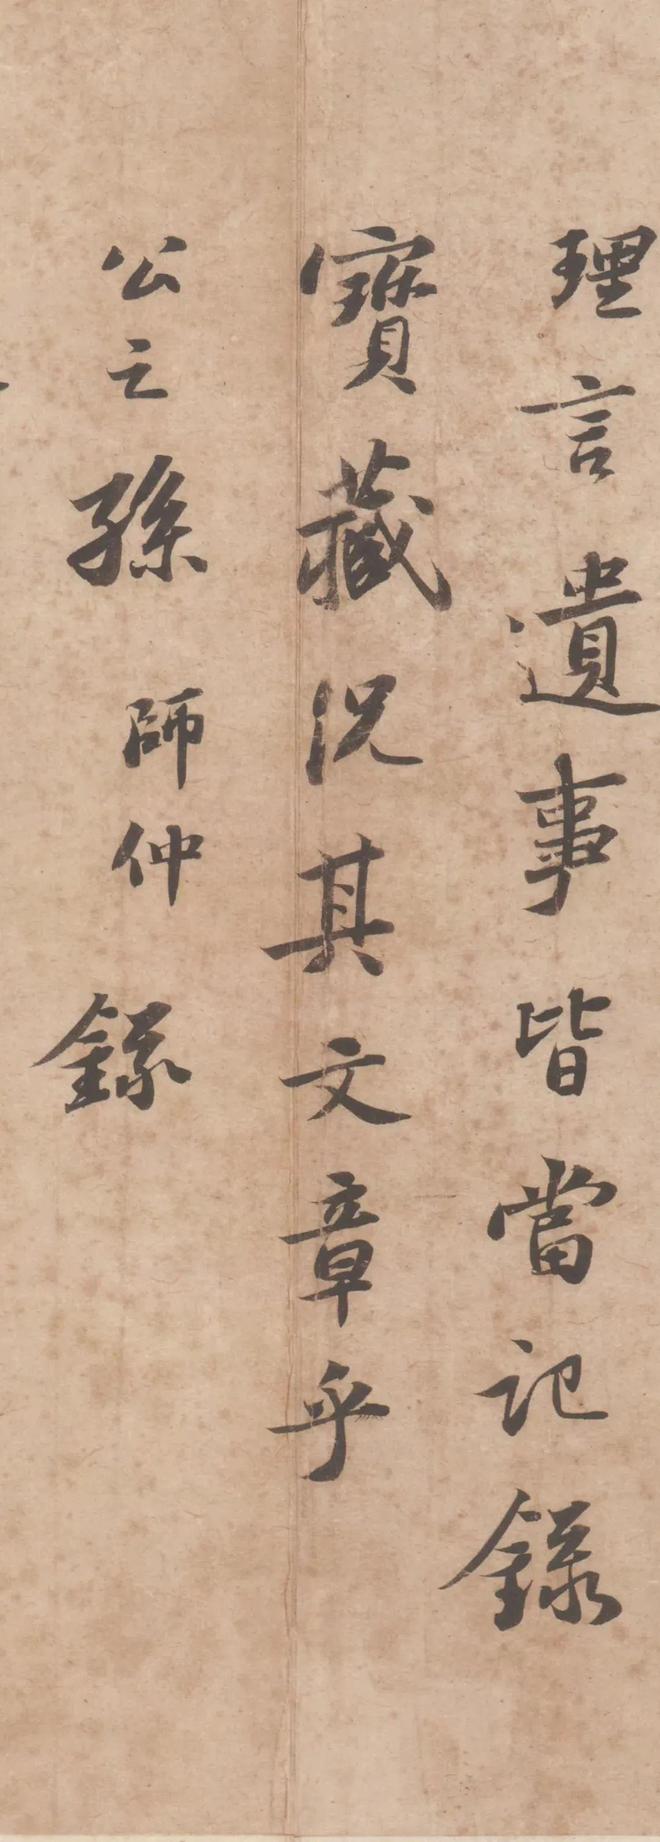 理言遺事皆當記錄
寶藏況其文章乎
公之孫師仲錄